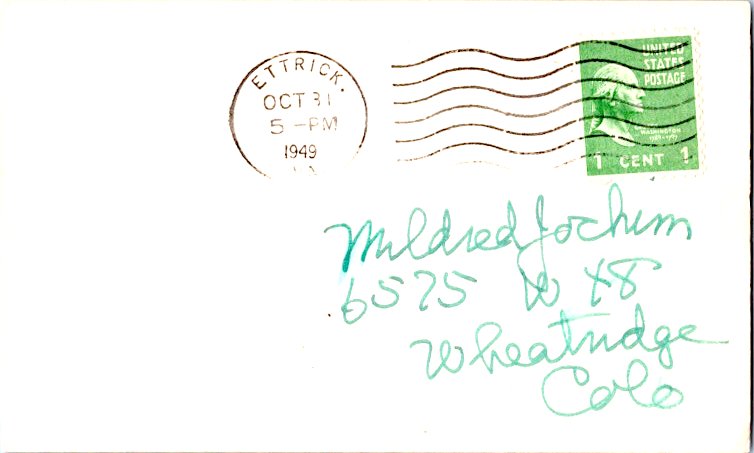 ETTRICK.
OCT 31
5-PM
1949
UNITED
STATES
POSTAGE
WASHINGTON
1789-1797
1 CENT 1
Mildred Jochim
6575 W 48
Wheatridge
Colo